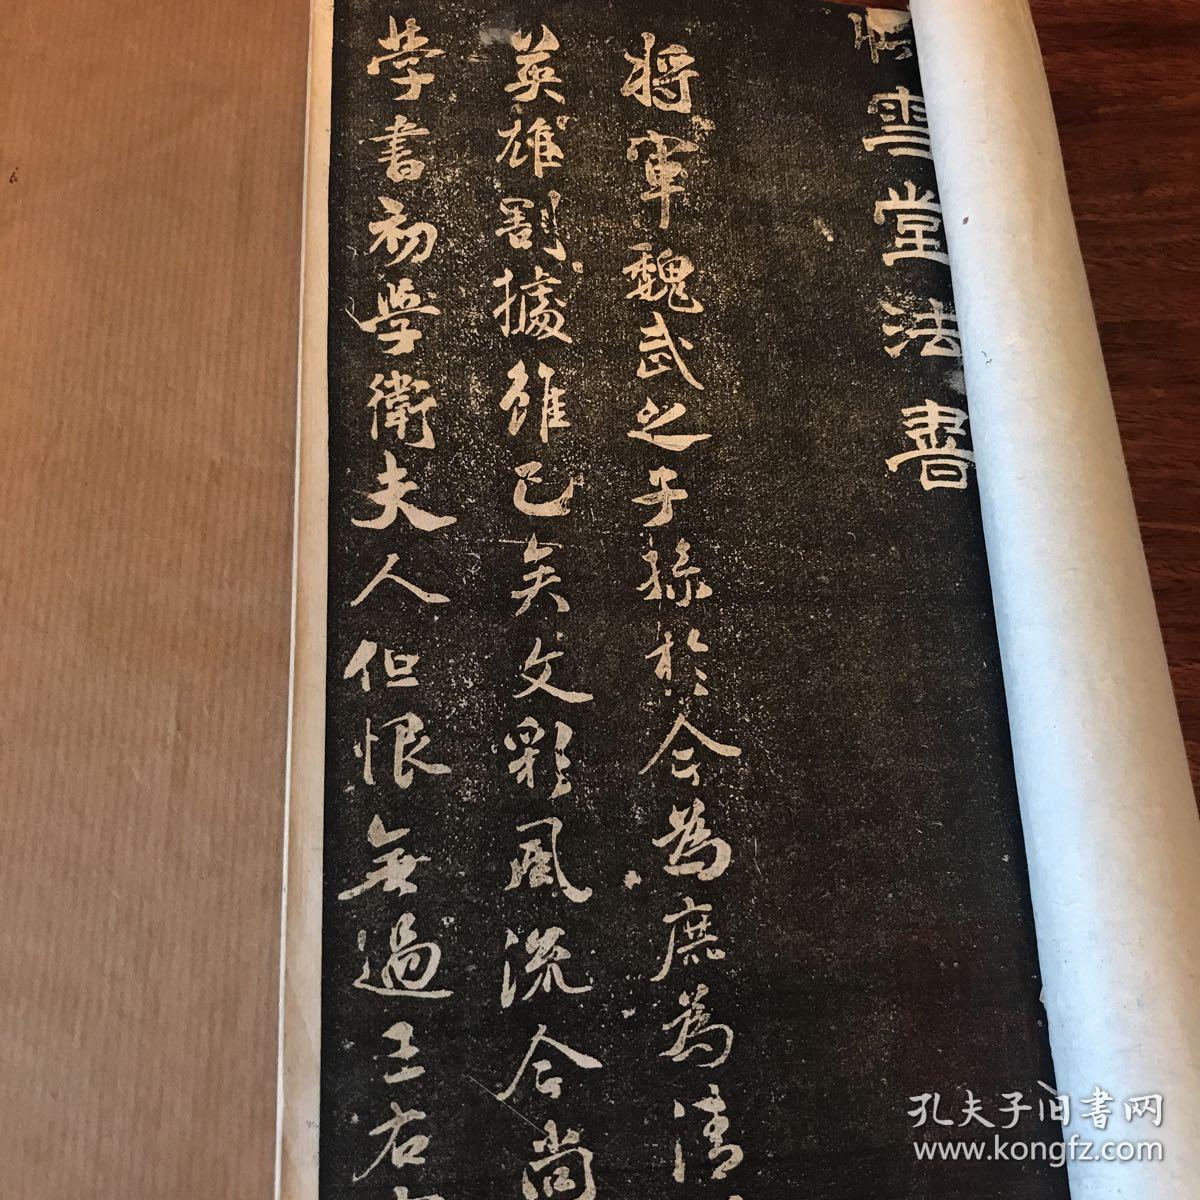 快雪堂法書
将軍魏武之子孫於今為庶為清
英雄割據雖已矣文彩風流今尚
學書初學衛夫人但恨無過王右
孔夫子旧书网
www.kongfz.com